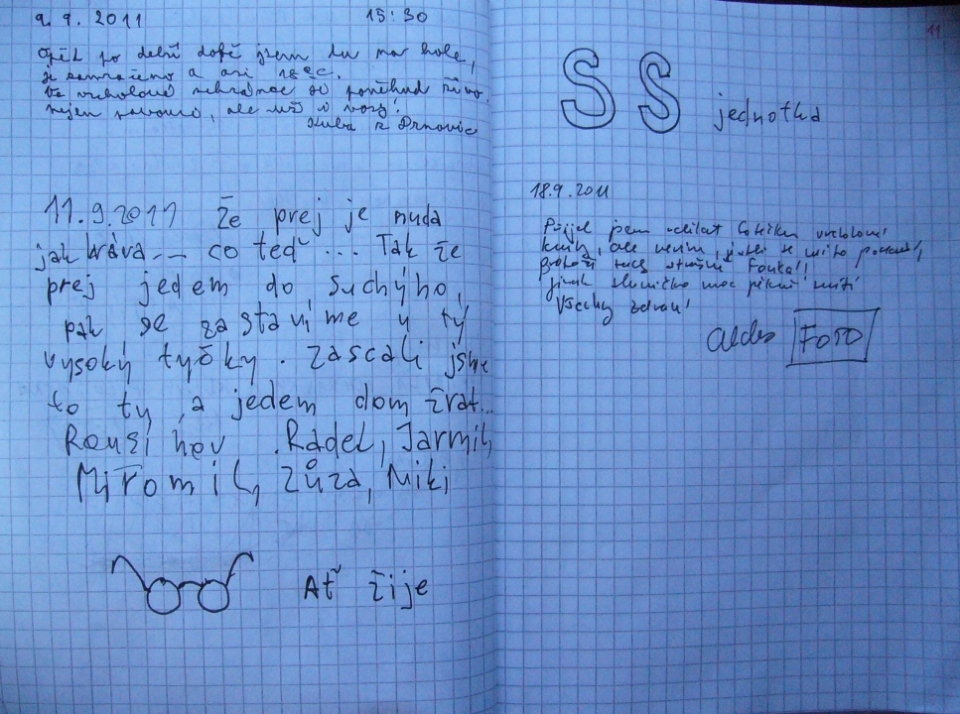 9. 9. 2011 15:30
Opět po delší době jsem tu na kole,
je zamračeno a asi 18°C.
Ve vrcholové schránce je poněkud živo,
nejen pavouci, ale už i vosy!
Kuba z Drnovic
11.9.2011 Že prej je nuda
jak kráva... co teď ... Tak že
prej jedem do Suchýho,
pak se zastavíme u tý
vysoký tyčky. Zascali jsme
to tу, a jedem dom žrat...
Rousíňov. Radel, Jarmil,
Miřomil, Zůza, Miki
Ať žije
11
SS jednotka
18.9.2011
Přijel jsem udělat fotečku vrcholové
knihy, ale nevím, jestli se mi to,
protože moc strašně Fouká!!
jinak sluníčko moc pěkně svítí
Všechny zdraví!
FOTO